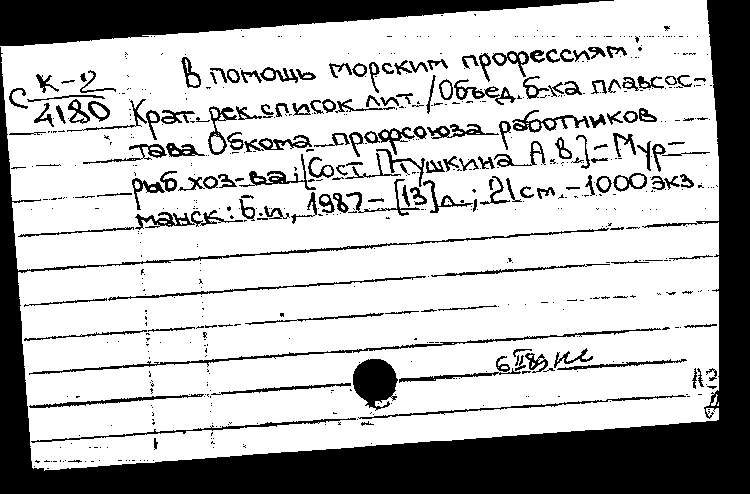 В помощь морским профессиям:
С К-2
4180
Крат. рек. список лит. / Объед. б-ка плавсос-
тава Обкома профсоюза работников
рыб. хоз-ва; [Сост. Птушкина А.В.] - Мур-
манск: Б.и., 1987 - [13] л.; 21 см. - 1000 экз.
6 II 89